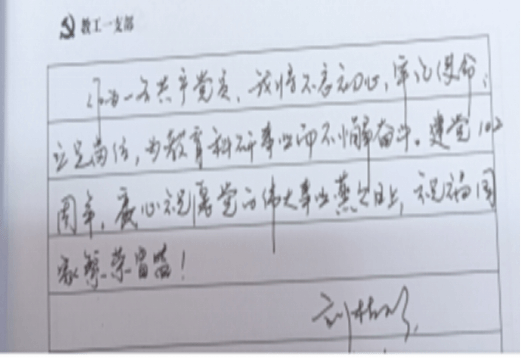 教工一支部
作为一名共产党员，我将不忘初心，牢记使命，
立足岗位，为教育科研事业而不懈奋斗。建党102
周年，衷心祝愿党的伟大事业蒸蒸日上，祝福国
家繁荣富强！